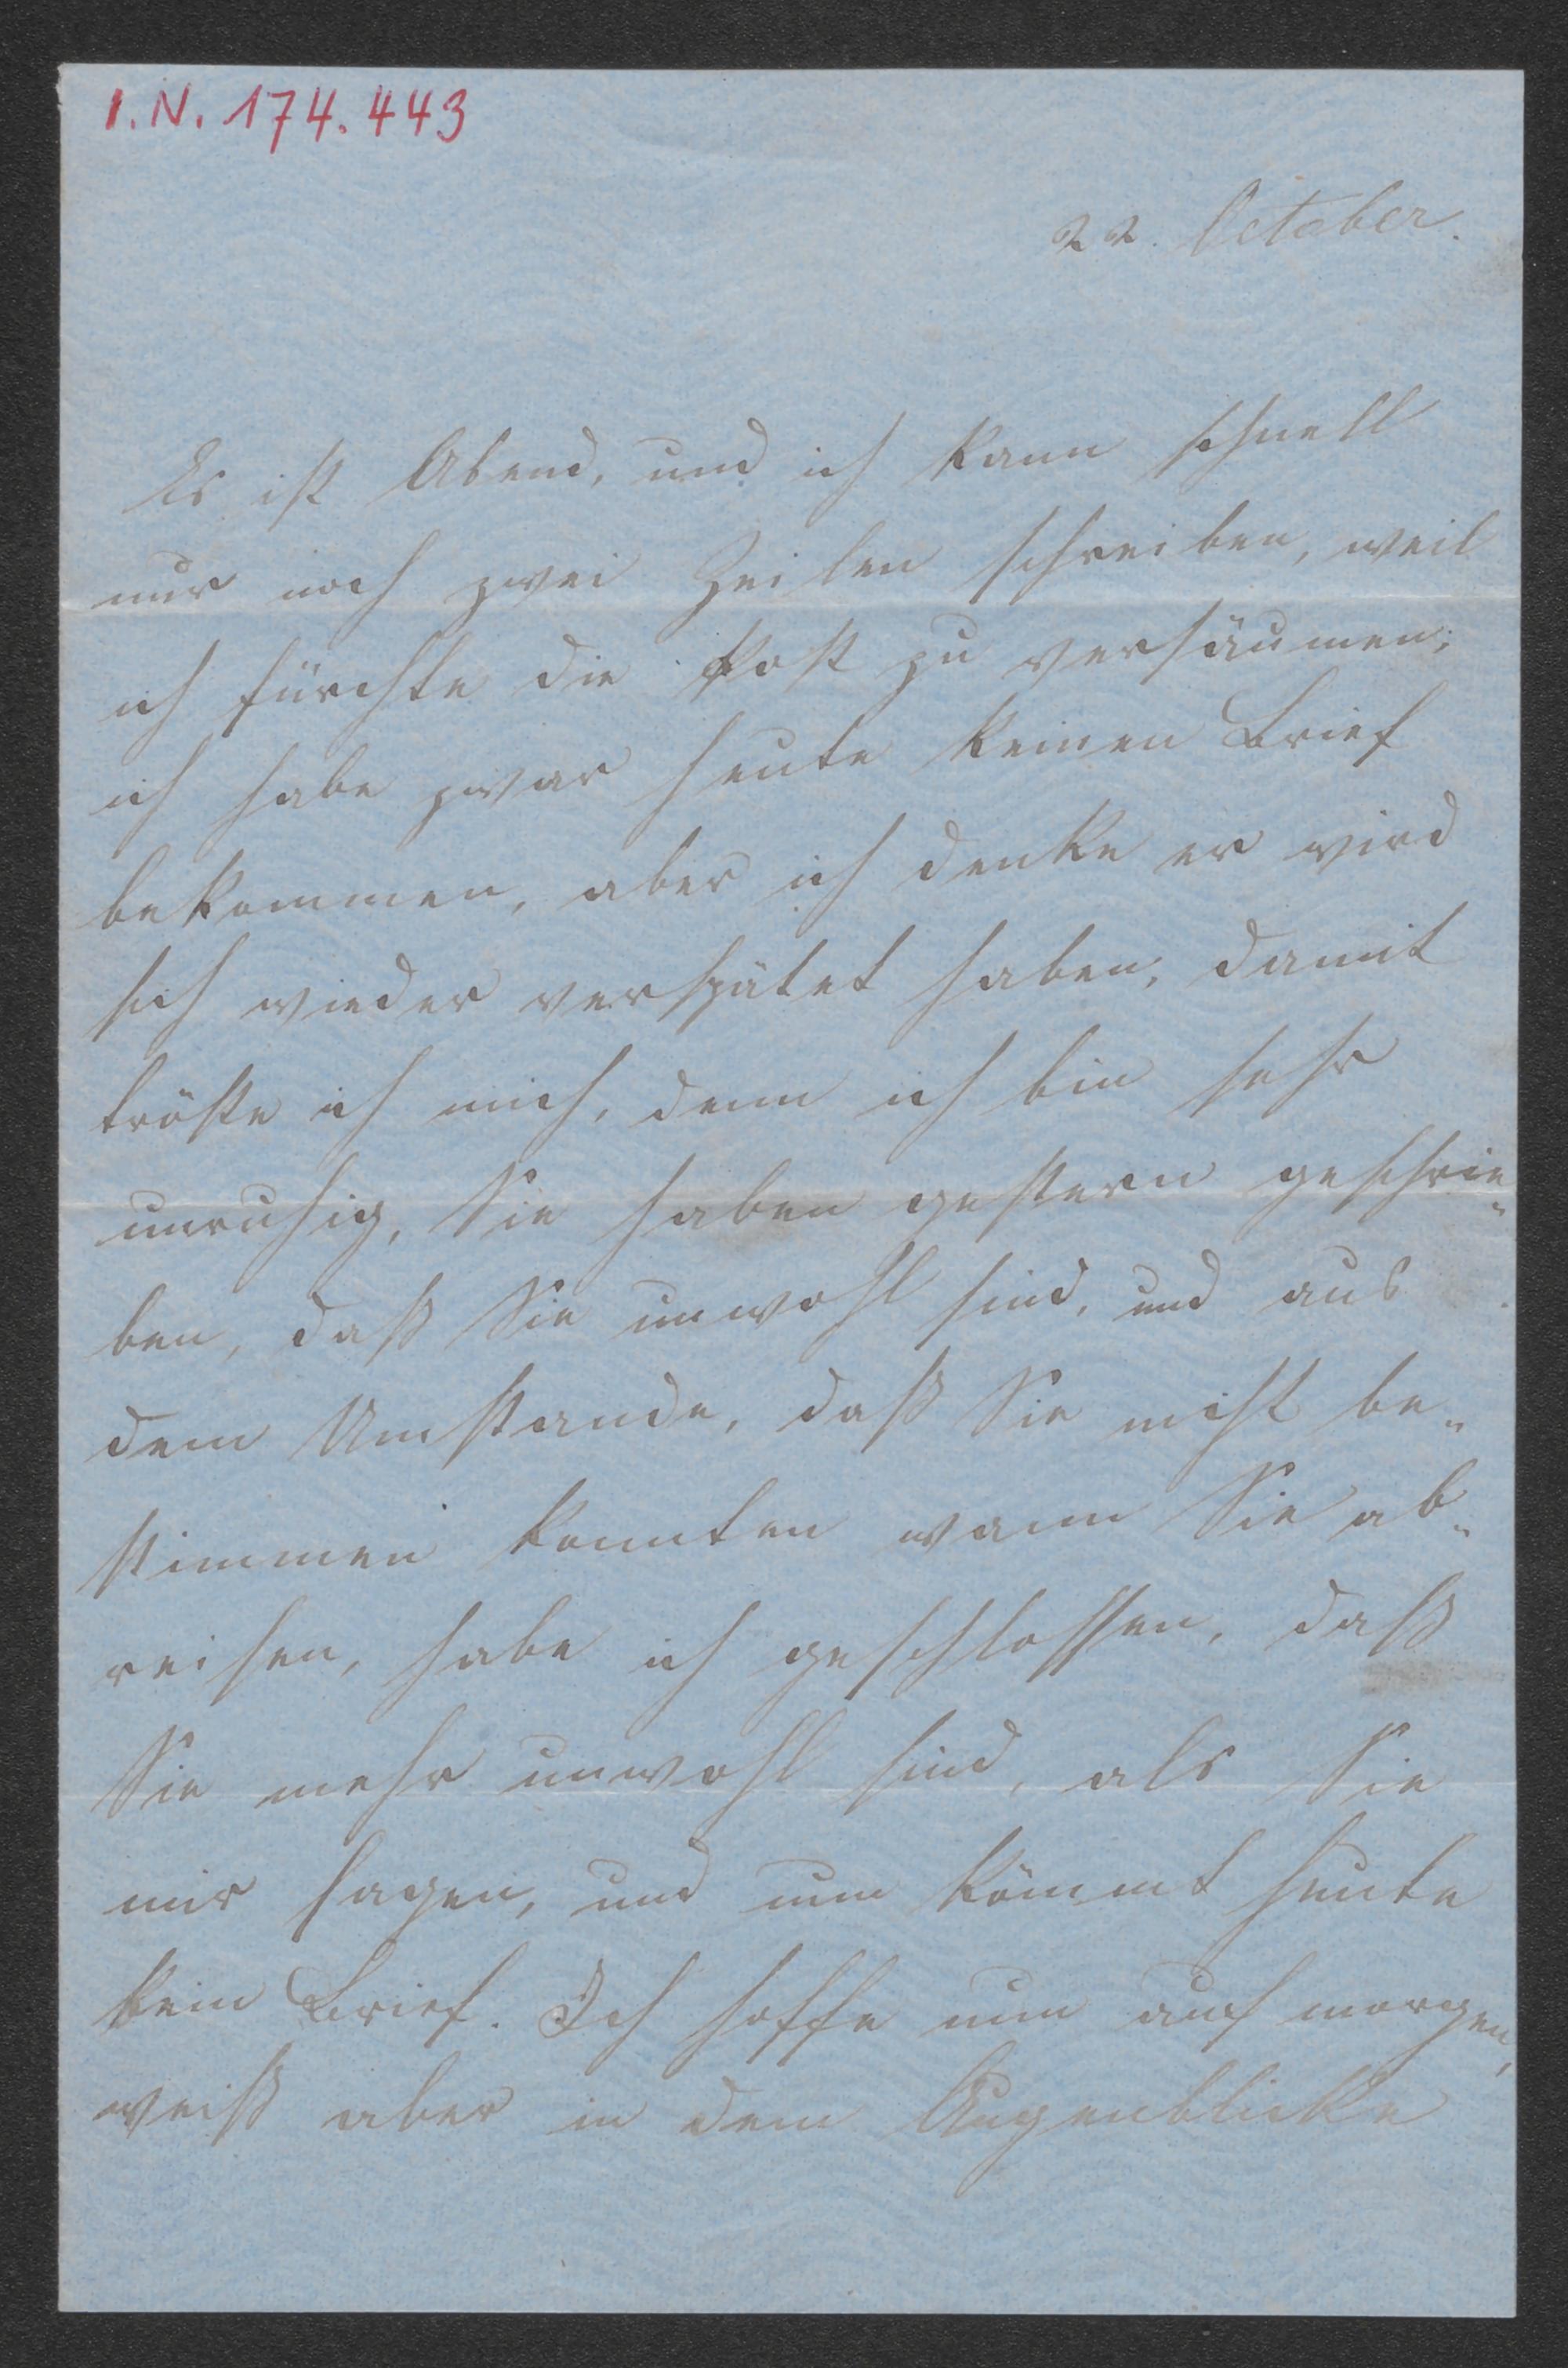 I.N. 174.443
22. October.
Es ist Abend, und ich kann schnell
nur noch zwei Zeilen schreiben, weil
ich fürchte die Post zu versäumen;
ich habe zwar heute keinen Brief
bekommen, aber ich denke er wird
sich wieder verspätet haben, damit
tröste ich mich, denn ich bin sehr
unruhig, Sie haben gestern geschrie„
ben, daß Sie unwohl sind, und aus
dem Umstande, daß Sie nicht be„
stimmen konnten wann Sie ab„
reisen, habe ich geschlossen, daß
Sie mehr unwohl sind, als Sie
mir sagen, und nun kömmt heute
kein Brief. Ich hoffe nun auf morgen,
weiß aber in dem Augenblicke